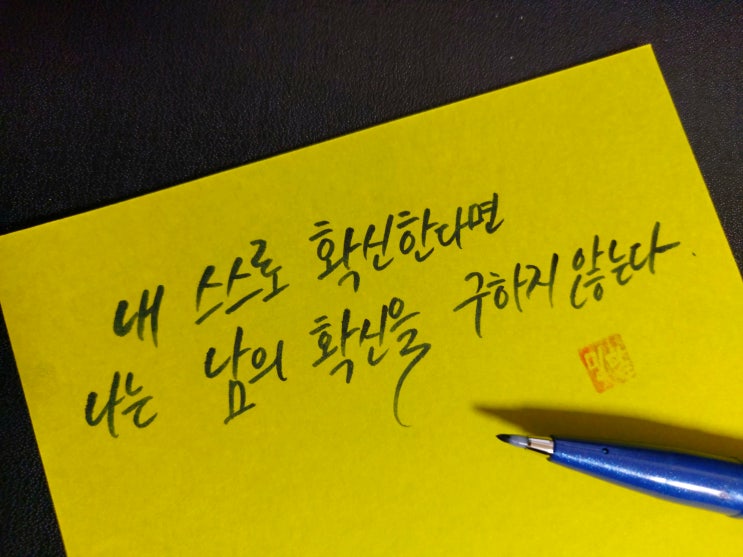 내 스스로 확신한다면
나는 남의 확신을 구하지 않는다.